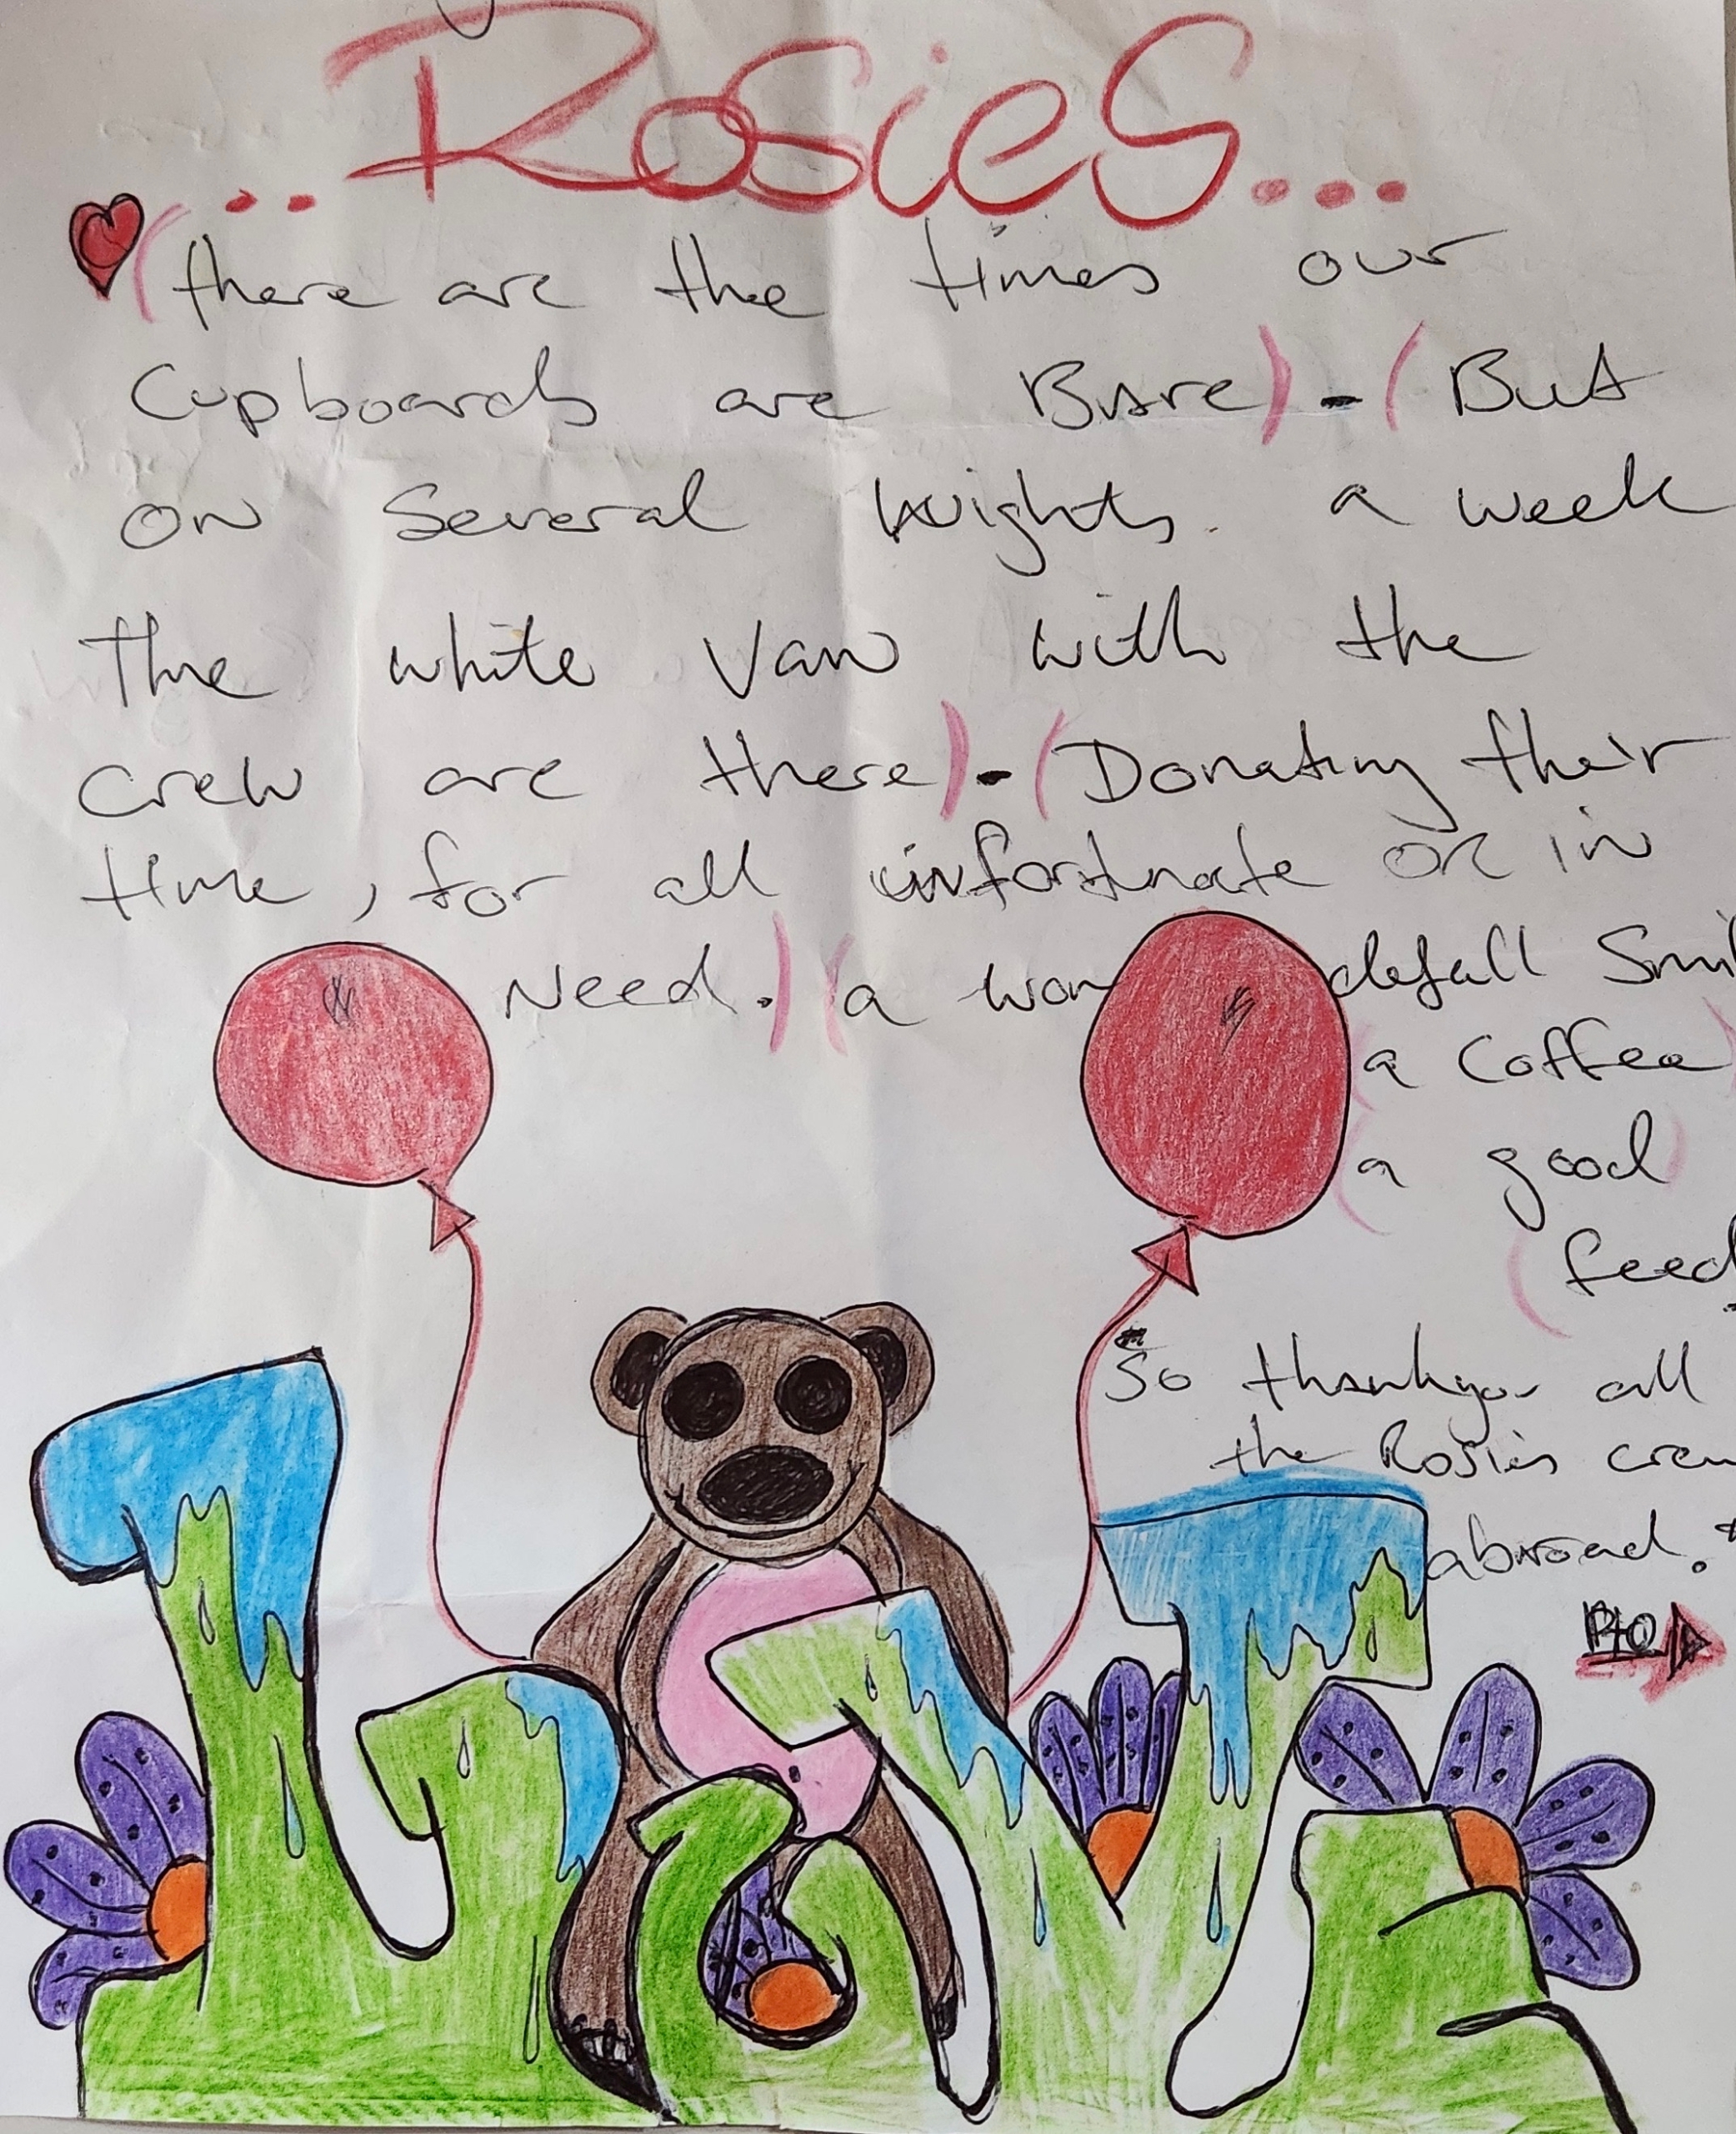 ..Rosies...
(there are the times our
Cupboards are Bare)-(But
on Several nights. a week
the white Van with the
crew are there)-(Donating their
time, for all unfortunate or in
Need.)(a wondefull Smil
(a Coffee)
(a good)
(feed
So thankyou all
the Rosies crew
abroad.*
PTO
LOVE